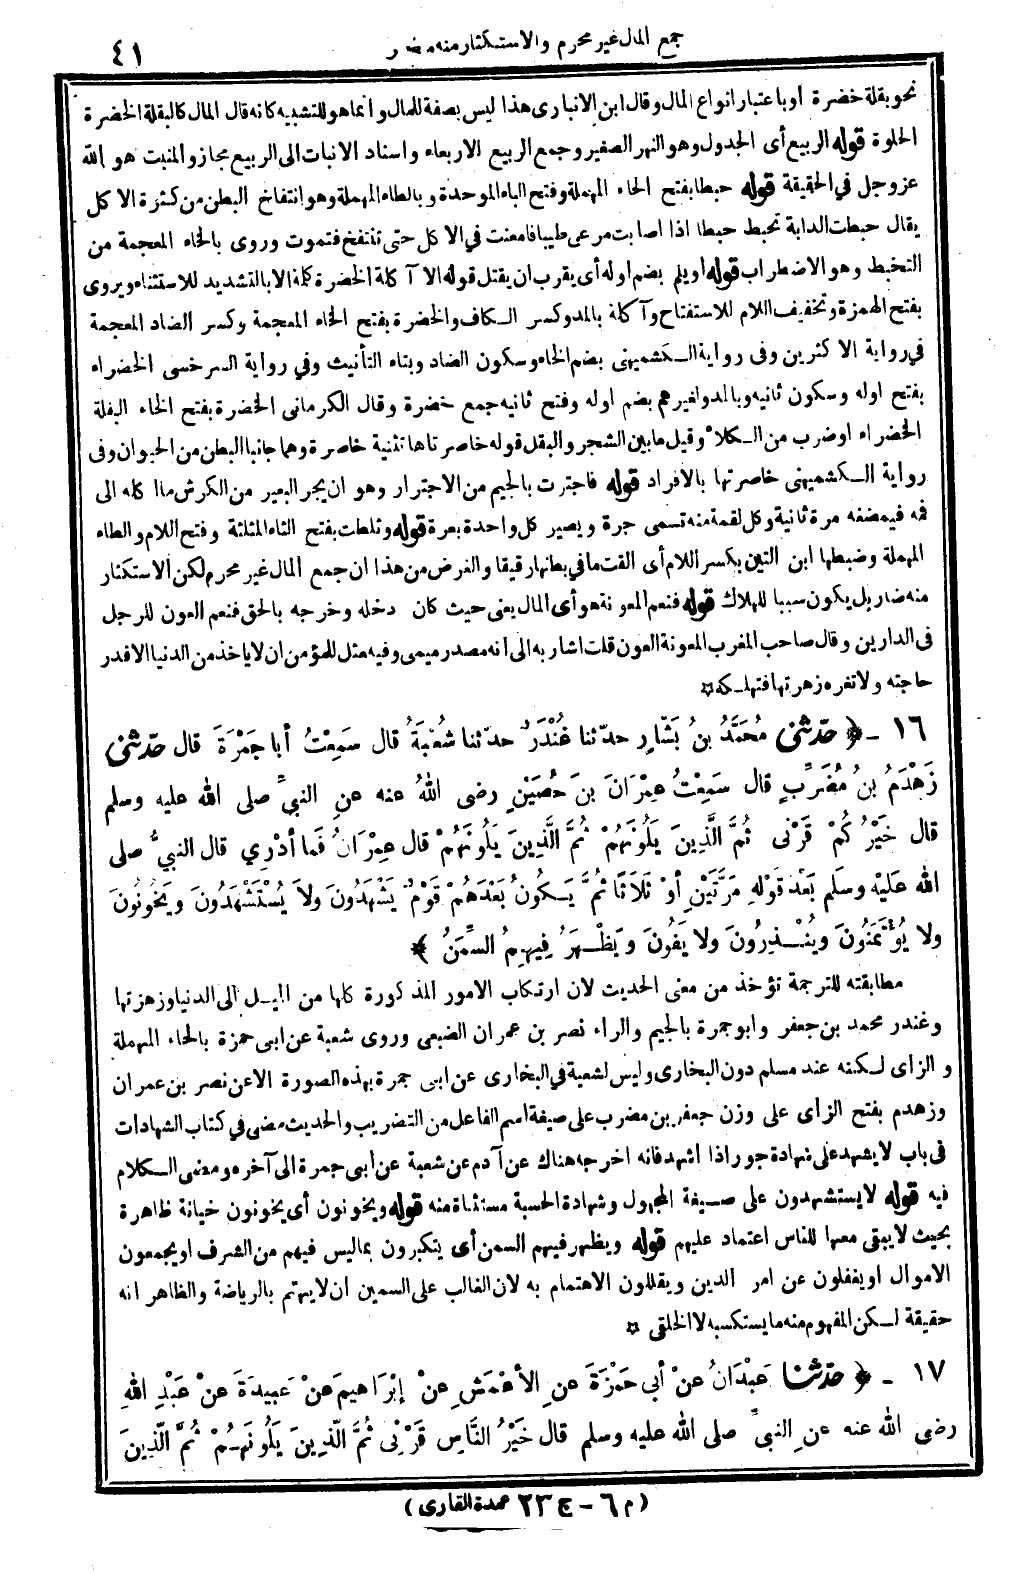 جمع المال غير محرم والاستكثار منه مضر
٤١
نحو بقلة خضرة أو باعتبار انواع المال وقال ابن الانبارى هذا ليس بصفة للمال وانما هو للتشبيه كانه قال المال كالبقلة الخضرة
الحلوة قوله الربيع أى الجدول وهو النهر الصغير وجمع الربيع الاربعاء واسناد الانبات الى الربيع مجاز والمنبت هو الله
عز وجل في الحقيقة قوله حبطا بفتح الحاء المهملة وفتح الباء الموحدة وبالطاء المهملة وهو انتفاخ البطن من كثرة الاكل
يقال حبطت الدابة تحبط حبطا اذا اصابت مرعى طيبا فامعنت في الاكل حتى تنتفخ فتموت وروى بالخاء المعجمة من
التخبط وهو الاضطراب قوله او يلم بضم اوله أى يقرب ان يقتل قوله الا آكلة الخضرة كلمة الا بالتشديد للاستثناء ويروى
بفتح الهمزة وتخفيف اللام للاستفتاح وآكلة بالمد وكسر الكاف والخضرة بفتح الخاء المعجمة وكسر الضاد المعجمة
في رواية الاكثرين وفى رواية الكشميهنى بضم الخاء وسكون الضاد وبتاء التأنيث وفي رواية السرخسى الخضراء
بفتح اوله وسكون ثانيه وبالمد ولغيرهم بضم اوله وفتح ثانيه جمع خضرة وقال الكرمانى الخضرة بفتح الخاء البقلة
الخضراء او ضرب من الكلأ وقيل ما بين الشجر والبقل قوله خاصرتاها تثنية خاصرة وهما جانبا البطن من الحيوان وفى
رواية الكشميهنى خاصرتها بالافراد قوله فاجترت بالجيم من الاجترار وهو ان يجر البعير من الكرش ما اكله الى
فمه فيمضغه مرة ثانية وكل لقمة منه تسمى جرة ويصير كل واحدة بعرة قوله وثلطت بفتح الثاء المثلثة وفتح اللام والطاء
المهملة وضبطها ابن التين بكسر اللام أى القت ما في بطنها رقيقا والغرض من هذا ان جمع المال غير محرم لكن الاستكثار
منه ضار بل يكون سببا للهلاك قوله فنعم المعونة هو أى المال يعنى حيث كان دخله وخرجه بالحق فنعم العون للرجل
فى الدارين وقال صاحب المغرب المعونة العون قلت اشار به الى انه مصدر ميمى وفيه مثل للمؤمن ان لا ياخذ من الدنيا الا قدر
حاجته ولا تغره زهرتها فتهلكه ¤
١٦ - ﴿ حدّثنى مُحَمَّدُ بنُ بَشّارٍ حدّثنا غُنْدَرٌ حدّثنا شُعْبَةُ قال سَمِعْتُ أبا جَمْرَةَ قال حدّثنى
زَهْدَمُ بنُ مُضَرِّبٍ قال سَمِعْتُ عِمْرَانَ بنَ حُصَيْنٍ رضى اللهُ عنه عنِ النبيِّ صلى الله عليه وسلم
قال خَيْرُكُمْ قَرْنى ثُمَّ الَّذِينَ يَلُونَهُمْ ثُمَّ الَّذِينَ يَلُونَهُمْ قال عِمْرَانُ فَما أدْرِي قال النبيُّ صلى
الله عَلَيْه وسَلم بَعْدَ قَوْلهِ مَرَّتَيْنِ أوْ ثَلَاثًا ثُمَّ يَكُونُ بَعْدَهُمْ قَوْمٌ يَشْهَدُونَ ولاَ يُسْتَشْهَدُونَ ويَخُونُونَ
ولا يُؤْتَمَنُونَ ويُنْذِرُونَ ولا يَفُونَ ويَظْهَرُ فِيهِمُ السِّمَنُ ﴾
مطابقته للترجمة تؤخذ من معنى الحديث لان ارتكاب الامور المذكورة كلها من الميل الى الدنيا وزهرتها
وغندر محمد بن جعفر وابو جمرة بالجيم والراء نصر بن عمران الضبعى وروى شعبة عن ابى حمزة بالحاء المهملة
والزاى لكنه عند مسلم دون البخارى وليس لشعبة في البخارى عن ابى جمرة بهذه الصورة الا عن نصر بن عمران
وزهدم بفتح الزاى على وزن جعفر بن مضرب على صيغة اسم الفاعل من التضريب والحديث مضى في كتاب الشهادات
فى باب لا يشهد على شهادة جور اذا اشهد فانه اخرجه هناك عن آدم عن شعبة عن ابى جمرة الى آخره ومضى الكلام
فيه قوله لا يستشهدون على صيغة المجهول وشهادة الحسبة مستثناة منه قوله ويخونون أى يخونون خيانة ظاهرة
بحيث لا يبقى معها للناس اعتماد عليهم قوله ويظهر فيهم السمن أى يتكبرون بما ليس فيهم من الشرف او يجمعون
الاموال او يغفلون عن امر الدين ويقللون الاهتمام به لان الغالب على السمين ان لا يهتم بالرياضة والظاهر انه
حقيقة لكن المفهوم منه ما يستكسبه لا الخلقى ¤
١٧ - ﴿ حدّثنا عَبْدَانُ عنْ أبي حَمْزَةَ عنِ الأعْمَشِ عنْ إبْرَاهيمَ عنْ عَبيدَةَ عنْ عَبْدِ اللهِ
رضى الله عنه عنِ النبىِّ صلى الله عليه وسلم قال خَيْرُ النَّاسِ قَرْنِى ثُمَّ الّذِينَ يَلُونَهُمْ ثُمَّ الّذِينَ
(م ٦ - ج ٢٣ عمدة القارى)